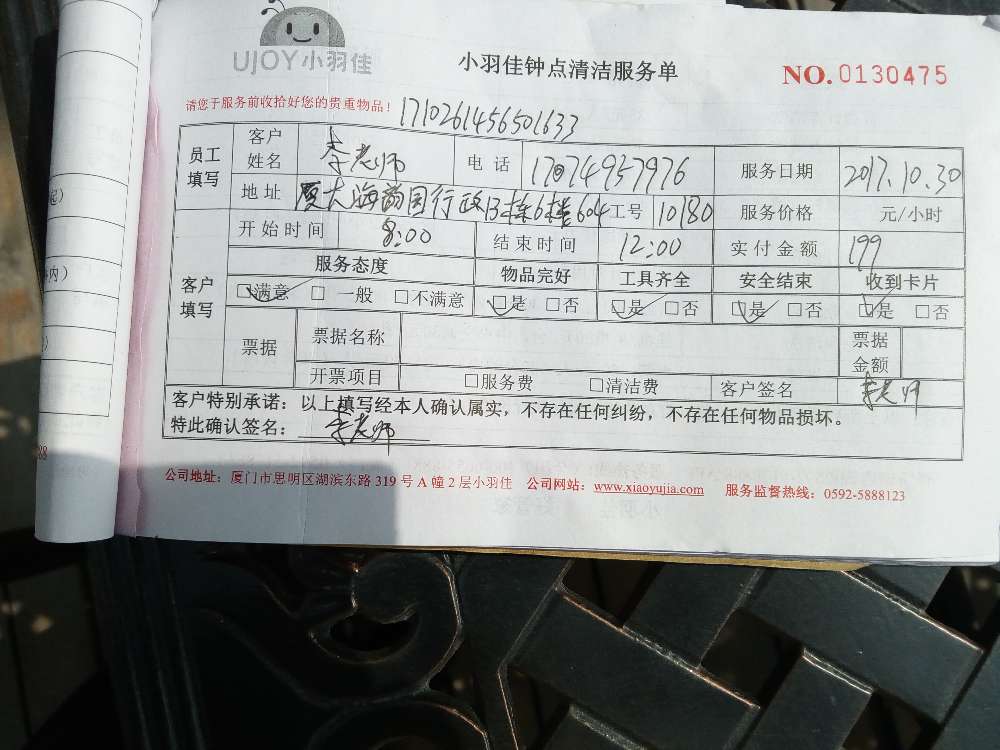 UJOY小羽佳
小羽佳钟点清洁服务单
NO.0130475
请您于服务前收拾好您的贵重物品！
1710261456501633
员工填写 客户姓名 李老师 电话 17074957976 服务日期 2017.10.30
地址 厦大海韵园行政B栋6楼604 工号 10180 服务价格 元/小时
客户填写 开始时间 8:00 结束时间 12:00 实付金额 199
服务态度 物品完好 工具齐全 安全结束 收到卡片
□满意 □一般 □不满意 □是 □否 □是 □否 □是 □否 □是 □否
票据 票据名称 票据金额
开票项目 □服务费 □清洁费 客户签名 李老师
客户特别承诺：以上填写经本人确认属实，不存在任何纠纷，不存在任何物品损坏。
特此确认签名：李老师
公司地址：厦门市思明区湖滨东路319号A幢2层小羽佳 公司网站：www.xiaoyujia.com 服务监督热线：0592-5888123